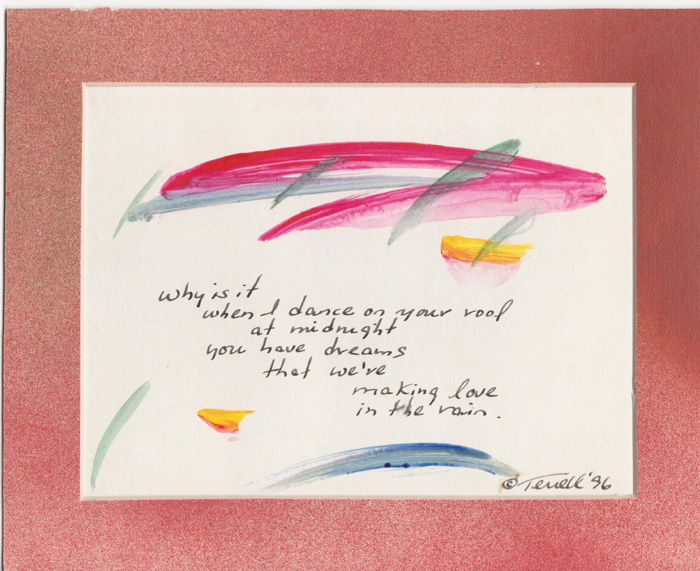 why is it
when I dance on your roof
at midnight
you have dreams
that we're
making love
in the rain.
© Terrell '96